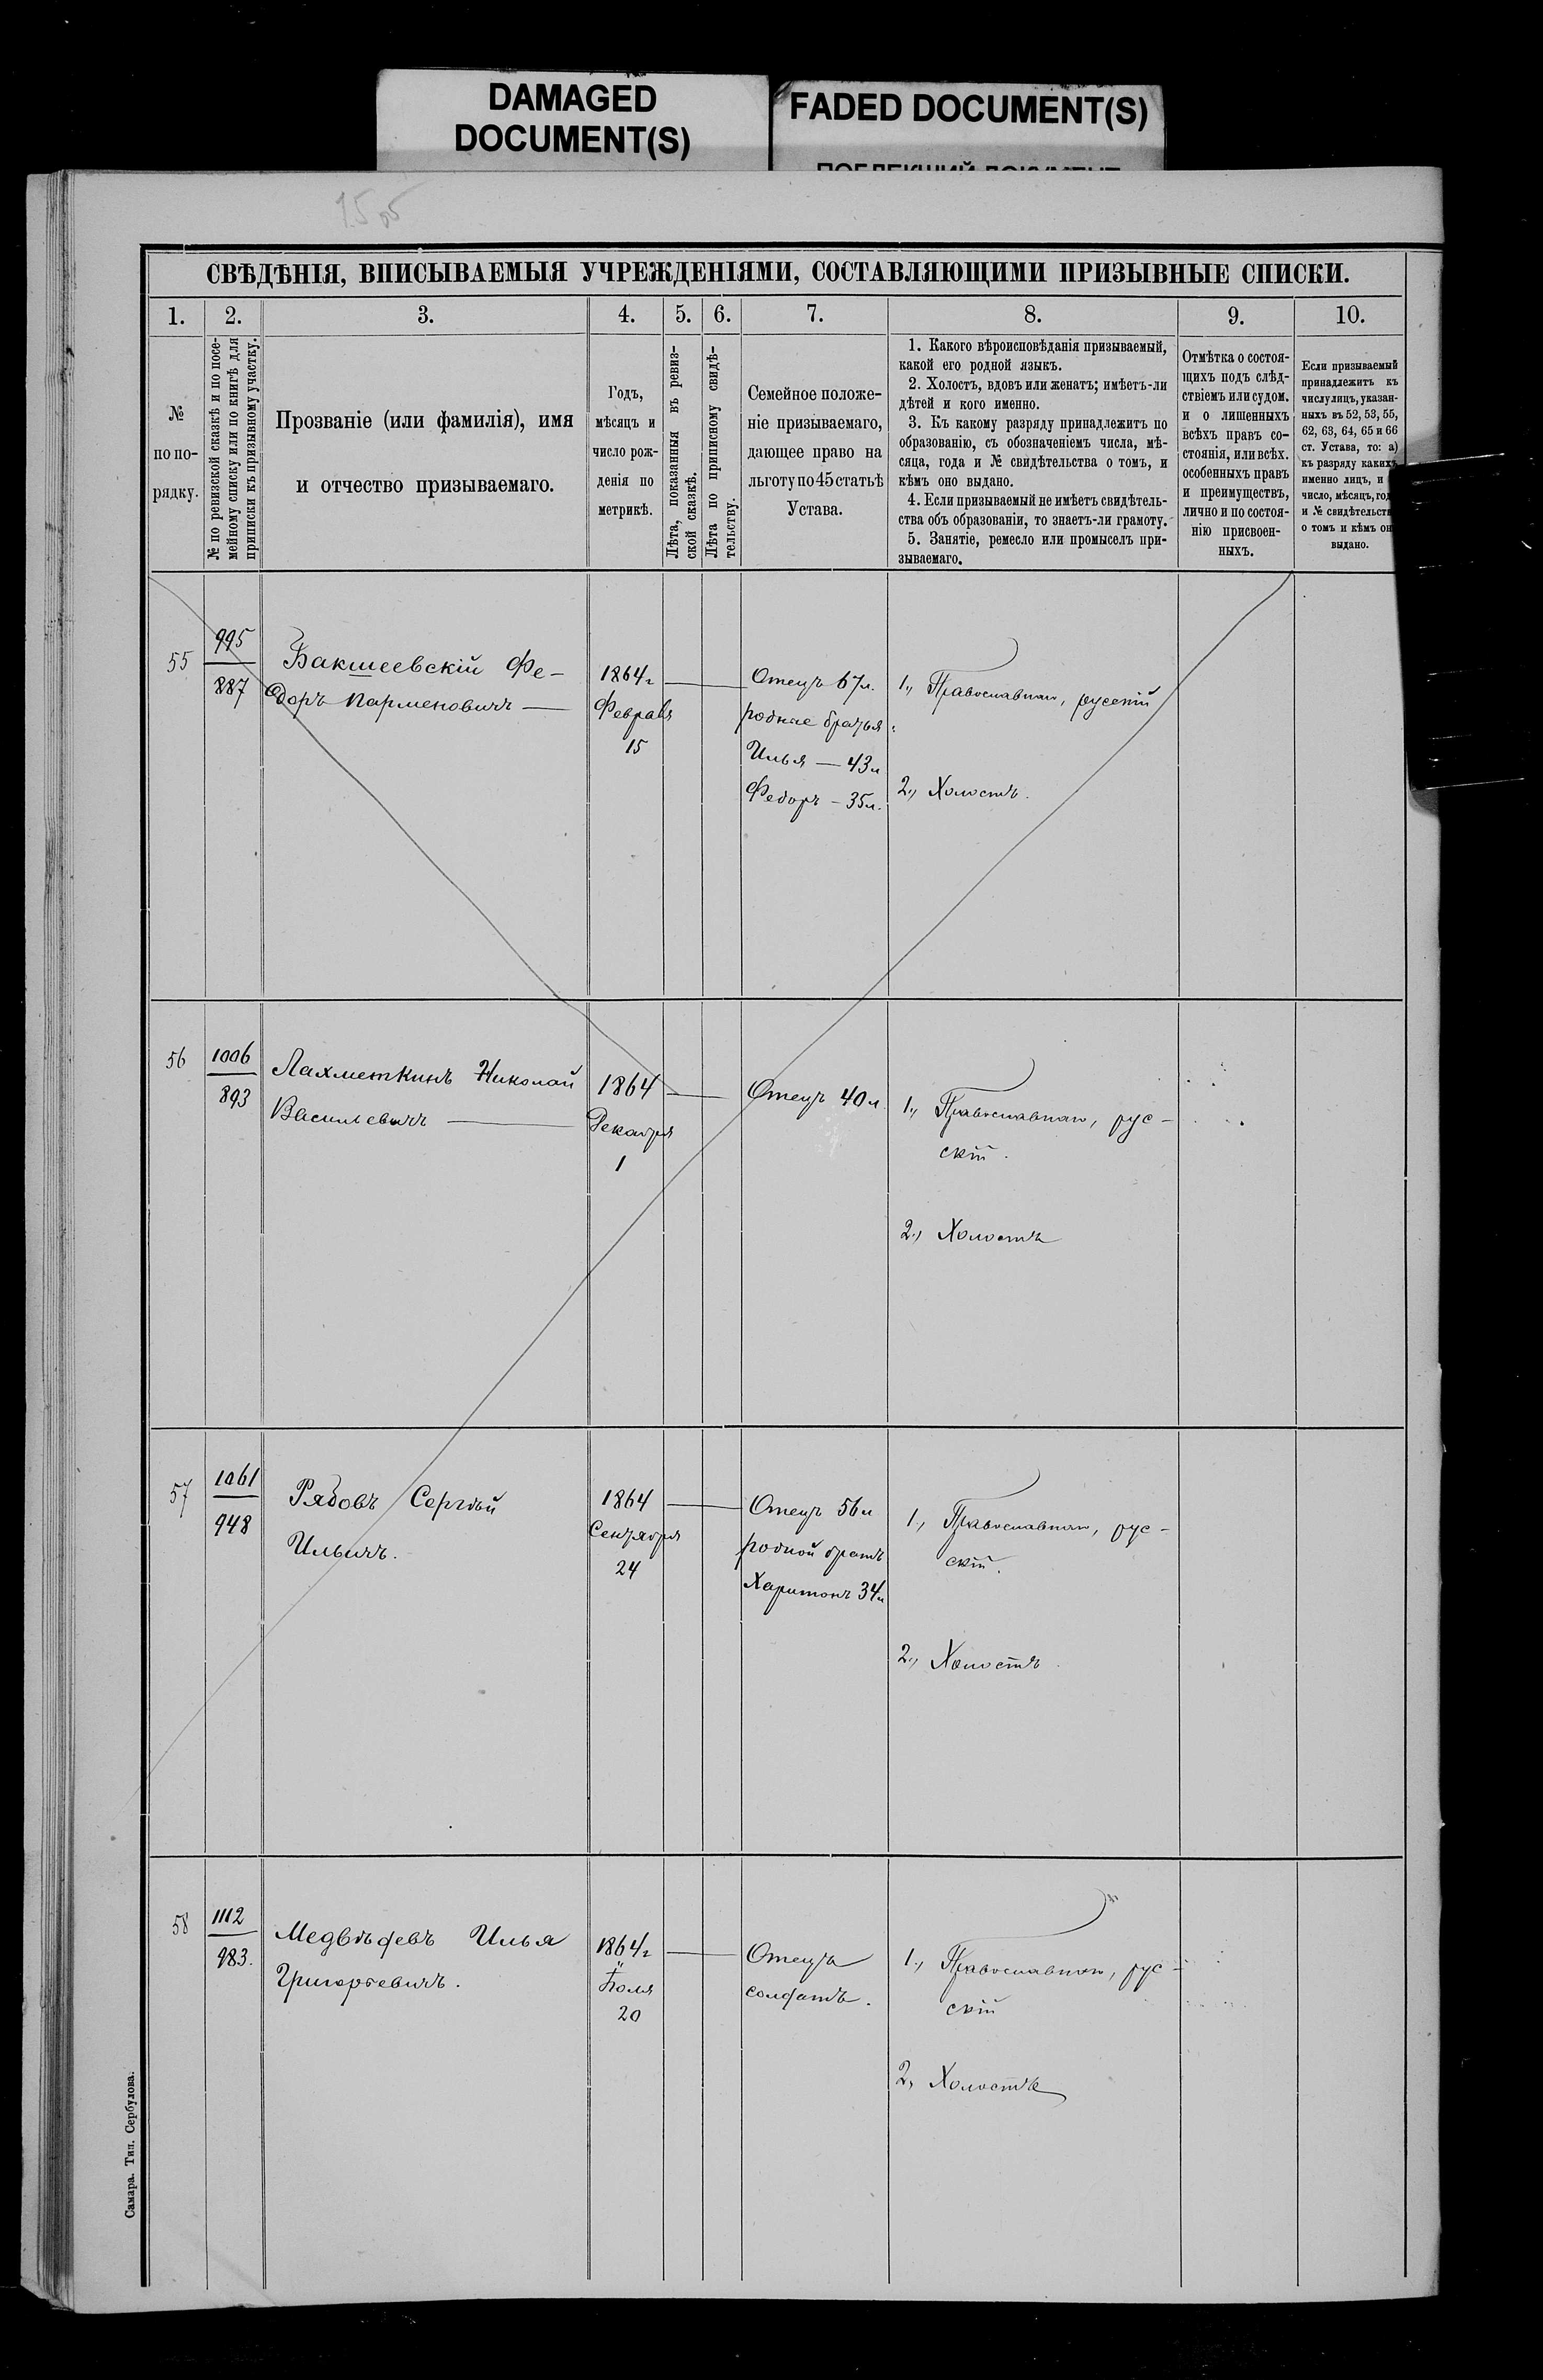 DAMAGED
DOCUMENT(S)
FADED DOCUMENT(S)
СВѢДѢНІЯ, ВПИСЫВАЕМЫЯ УЧРЕЖДЕНІЯМИ, СОСТАВЛЯЮЩИМИ ПРИЗЫВНЫЕ СПИСКИ.
1.
2.
3.
4.
5.
6.
7.
8.
9.
10.
№
по по-
рядку.
№ по ревизской сказкѣ и по посе-
мейному списку или по книгѣ для
приписки къ призывному участку.
Прозваніе (или фамилія), имя
и отчество призываемаго.
Годъ,
мѣсяцъ и
число рож-
денія по
метрикѣ.
Лѣта, показанныя въ ревиз-
ской сказкѣ.
Лѣта по приписному свидѣ-
тельству.
Семейное положе-
ніе призываемаго,
дающее право на
льготу по 45 статьѣ
Устава.
1. Какого вѣроисповѣданія призываемый,
какой его родной языкъ.
2. Холостъ, вдовъ или женатъ; имѣетъ-ли
дѣтей и кого именно.
3. Къ какому разряду принадлежитъ по
образованію, съ обозначеніемъ числа, мѣ-
сяца, года и № свидѣтельства о томъ, и
кѣмъ оно выдано.
4. Если призываемый не имѣетъ свидѣтель-
ства объ образованіи, то знаетъ-ли грамоту.
5. Занятіе, ремесло или промыселъ при-
зываемаго.
Отмѣтка о состоя-
щихъ подъ слѣд-
ствіемъ или судом.
и о лишенныхъ
всѣхъ правъ со-
стоянія, или всѣх.
особенныхъ правъ
и преимуществъ,
лично и по состоя-
нію присвоен-
ныхъ.
Если призываемый
принадлежитъ къ
числу лицъ, указан-
ныхъ въ 52, 53, 55,
62, 63, 64, 65 и 66
ст. Устава, то: а)
къ разряду какихъ
именно лиц, и
число, мѣсяцъ, год
и № свидѣтельств
о томъ и кѣмъ он
выдано.
55
995
887
Бакшеевскій Фе-
доръ Парменовичъ —
1864 г
Февраля
15
Отецъ 67 л.
родные братья:
Илья — 43 л
Федоръ — 35 л.
1., Православнаго, русскій
2., Холостъ.
56
1006
893
Лахметкинъ Николай
Васильевичъ —
1864
Декабря
1
Отецъ 40 л.
1., Православнаго, рус-
скій.
2., Холостъ
57
1061
948
Рябовъ Сергѣй
Ильичъ.
1864
Сентября
24
Отецъ 56 л
родной братъ
Харитонъ 34 л
1., Православнаго, рус-
скій.
2., Холостъ.
58
1112
983.
Медвѣдевъ Илья
Григорьевичъ.
1864 г
Іюля
20
Отецъ
солдатъ.
1., Православнаго, рус-
скій
2., Холостъ
Самара. Тип. Сербулова.